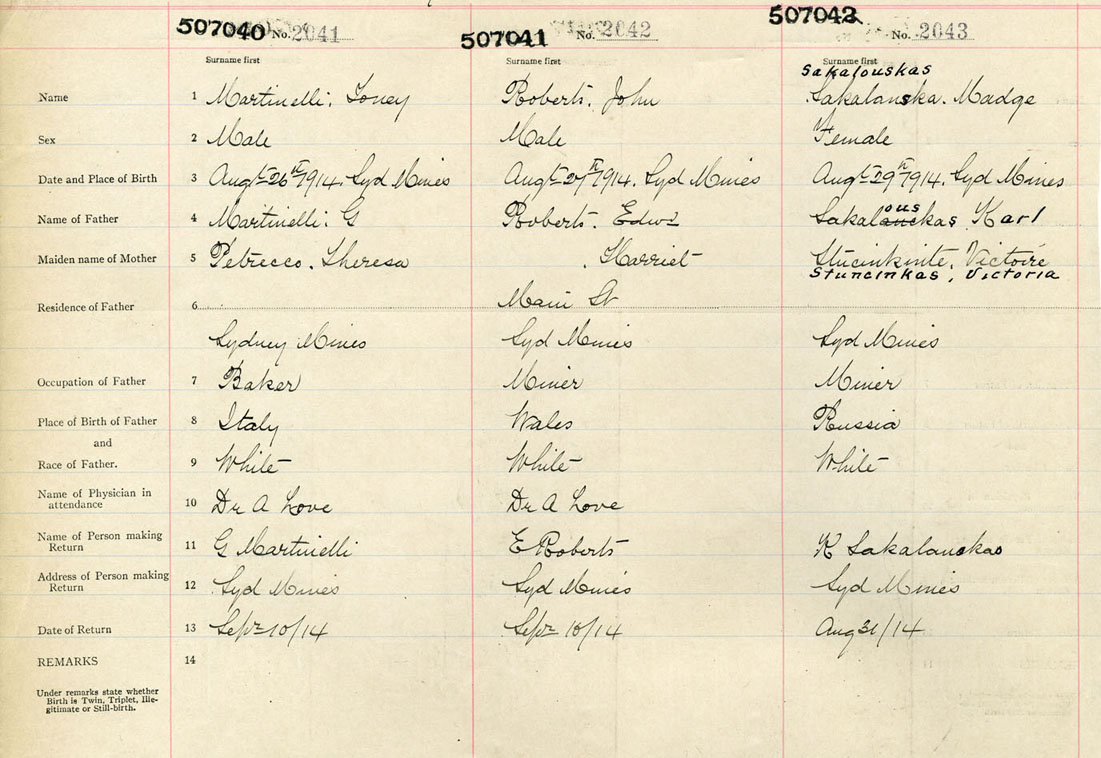 507040 No. 2041
507041 No. 2042
507042 No. 2043
Surname first Surname first Surname first
Sakalouskas
Name 1 Martinelli, Toney Roberts, John Sakalanska. Madge
Sex 2 Male Male Female
Date and Place of Birth 3 Augt 26th 1914. Syd Mines Augt 27th 1914. Syd Mines Augt 29th 1914. Syd Mines
ous
Name of Father 4 Martinelli, G Roberts. Edwd Sakalanckas, Karl
Maiden name of Mother 5 Petrecco, Theresa , Harriet Stucinkinte, Victoire
Stuncinkas, Victoria
Residence of Father 6 Main St
Sydney Mines Syd Mines Syd Mines
Occupation of Father 7 Baker Miner Miner
Place of Birth of Father 8 Italy Wales Russia
and
Race of Father. 9 White White White
Name of Physician in
attendance 10 Dr A Love Dr A Love
Name of Person making
Return 11 G Martinelli E Roberts K Sakalanckas
Address of Person making
Return 12 Syd Mines Syd Mines Syd Mines
Date of Return 13 Sepr 10/14 Sepr 18/14 Aug 31/14
REMARKS 14
Under remarks state whether
Birth is Twin, Triplet, Ille-
gitimate or Still-birth.